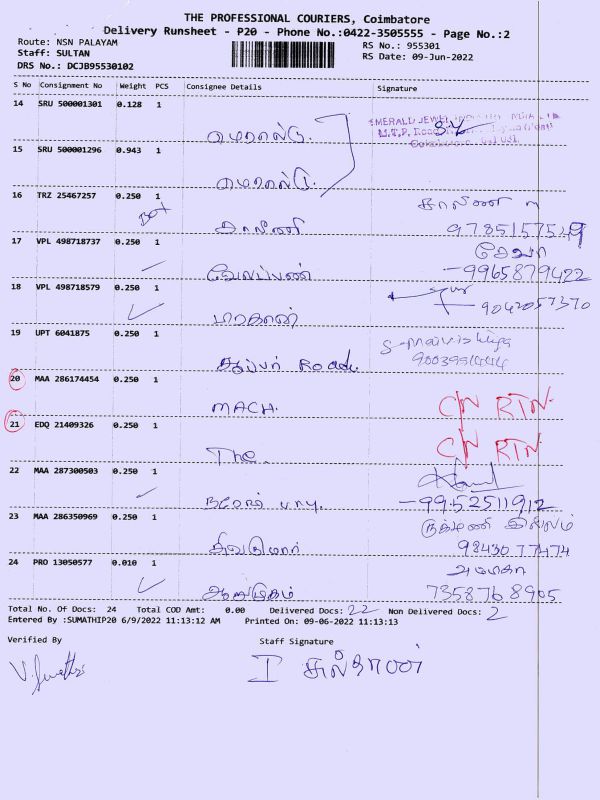 THE PROFESSIONAL COURIERS, Coimbatore
Delivery Runsheet - P20 - Phone No.:0422-3505555 - Page No.:2
Route: NSN PALAYAM
RS No.: 955301
Staff: SULTAN
RS Date: 09-Jun-2022
DRS No.: DCJB95530102
S No Consignment No Weight PCS Consignee Details Signature
14 SRU 500001301 0.128 1
EMERALD JEWEL
எமரால்டு.
15 SRU 500001296 0.943 1
எமரால்டு.
16 TRZ 25467257 0.250 1
காலினி
17 VPL 498718737 0.250 1
வேலப்பன் -9965879422
18 VPL 498718579 0.250 1
9042057370
19 UPT 6041875 0.250 1
Road.
20 MAA 286174454 0.250 1
MACH. CN RTN.
21 EDQ 21409326 0.250 1
The. CN RTN.
22 MAA 287300503 0.250 1
-9952511912
23 MAA 286350969 0.250 1
ருக்மணி இல்லம்
சிவகுமார் 9843077474
24 PRO 13050577 0.010 1
ஆறுமுகம் 7358768905
Total No. Of Docs: 24 Total COD Amt: 0.00 Delivered Docs: 22 Non Delivered Docs: 2
Entered By :SUMATHIP20 6/9/2022 11:13:12 AM Printed On: 09-06-2022 11:13:13
Verified By Staff Signature
I சுல்தான்